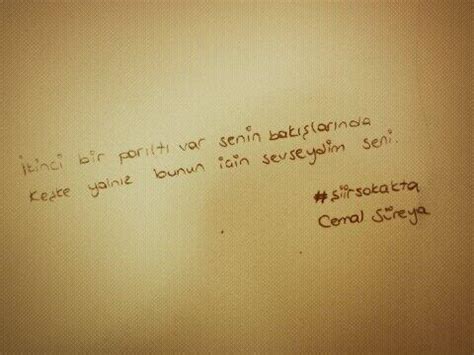 İkinci bir parıltı var senin bakışlarında
Keşke yalnız bunun için sevseydim seni.
#şiirsokakta
Cemal Süreya